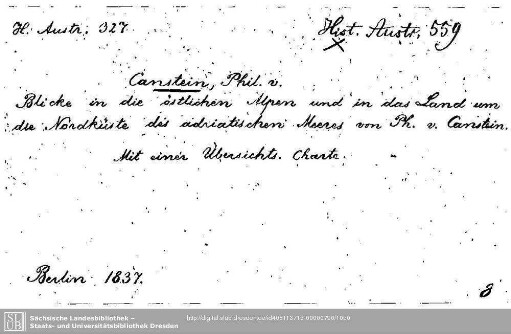 H. Austr. 327
Hist. Austr. 559
Canstein, Phil. v.
Blicke in die östlichen Alpen und in das Land um
die Nordküste des adriatischen Meeres von Ph. v. Canstein.
Mit einer Übersichts. Charte.
Berlin 1837.
8
Sächsische Landesbibliothek –
Staats- und Universitätsbibliothek Dresden